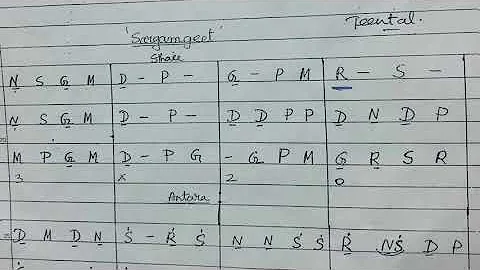 Teental.
'Sargamgeet'
Sthai
N S G M D - P - G - P M R - S -
N S G M D - P - D D P P D N D P
M P G M D - P G - G P M G R S R
3 x 2 0
Antara
= D M D N Ṡ - Ṙ Ṡ N N Ṡ Ṡ Ṙ NṠ D P